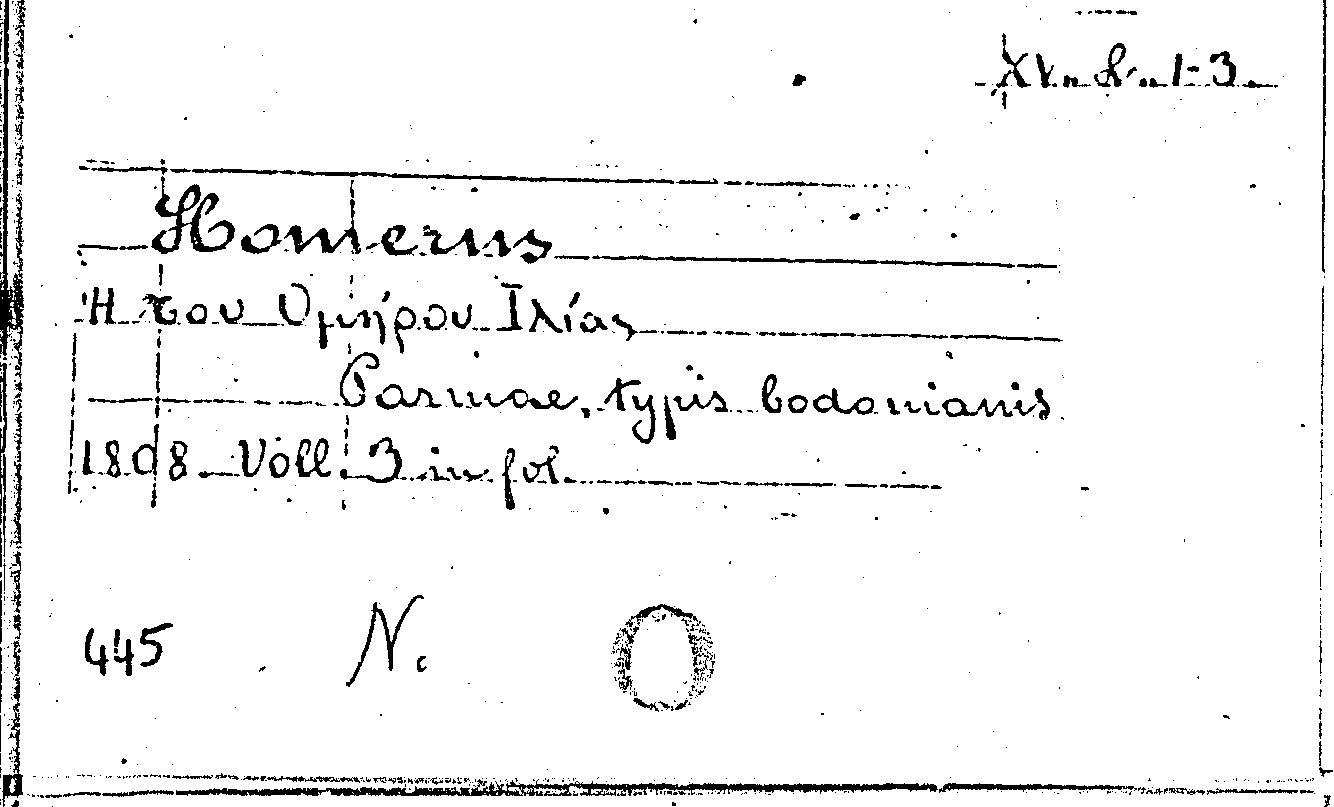 XV. 8. 1-3.
Homerus
Ἡ του Ομήρου Ιλίας
Parmae, typis bodonianis
1808. Voll. 3 in fol.
445 N.